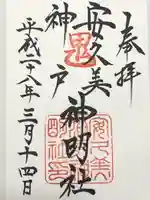 奉拝
安久美
神戸
神明社
平成二十八年三月十四日